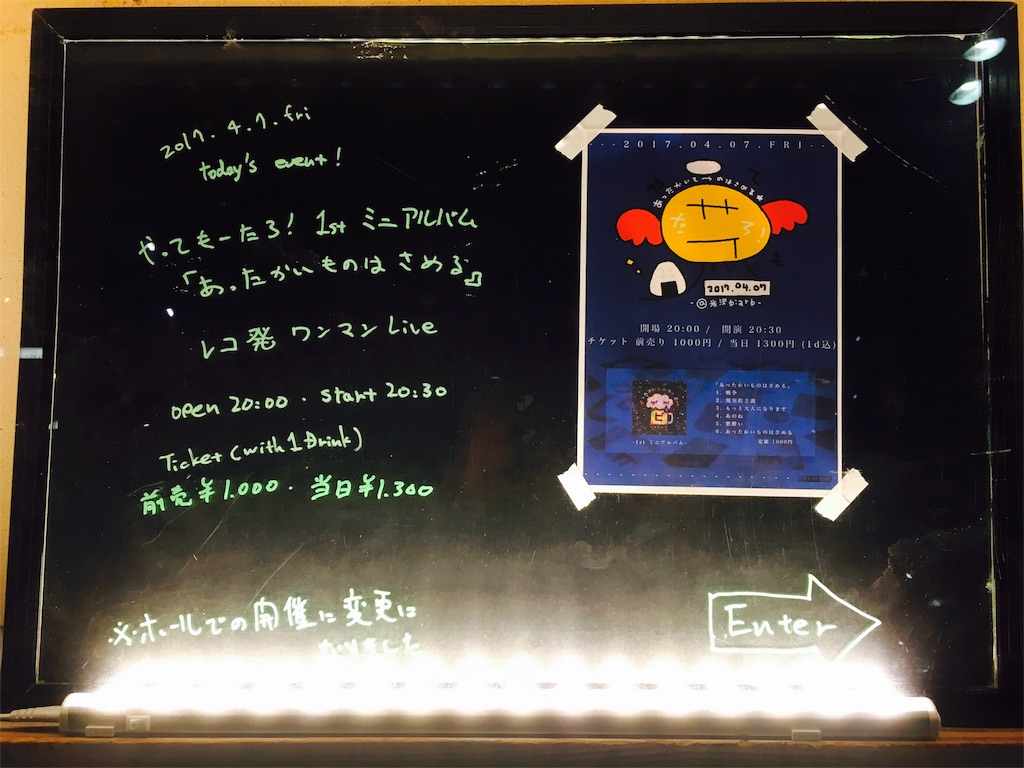 2017.4.7.fri
today's event!
やってもーたろ! 1st ミニアルバム
「あったかいものはさめる」
レコ発 ワンマン Live
open 20:00 . start 20:30
Ticket (with 1 Drink)
前売¥1.000 . 当日¥1.300
※ホールでの開催に変更に
なりました
Enter
--2017.04.07.FRI--
あったかいものはさめる
やってもたろ!
2017.04.07
-@米沢barb-
開場 20:00 / 開演 20:30
チケット 前売り 1000円 / 当日 1300円 (1d込)
-1st ミニアルバム-
「あったかいものはさめる」
1. 戦争
2. 現実的主義
3. もっと大人になります
4. あのね
5. 悪酔い
6. あったかいものはさめる
定価 1000円